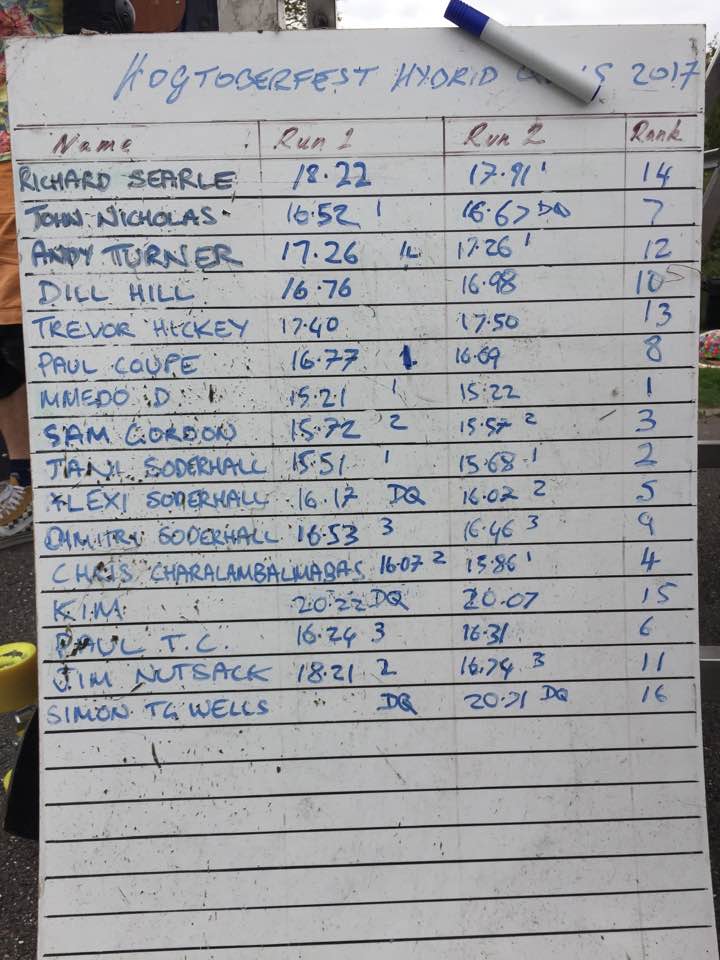 HOGTOBERFEST HYBRID 2017
Name : Run 1 Run 2 Rank
RICHARD SEARLE 18.22 17.91 1 14
JOHN NICHOLAS 16.52 1 16.67 DQ 7
ANDY TURNER 17.26 17.26 1 12
DILL HILL 16.76 16.98 10
TREVOR HICKEY 17.40 17.50 13
PAUL COUPE 16.77 1 16.69 8
MMEDO D 15.21 1 15.22 1
SAM GORDON 15.72 2 15.57 2 3
JANI SODERHALL 15.51 1 15.68 1 2
ALEXI SODERHALL 16.17 DQ 16.02 2 5
DIMITRI SODERHALL 16.53 3 16.46 3 9
CHRIS CHARALAMBALMABAS 16.07 2 15.86 1 4
KIM 20.22 DQ 20.07 15
PAUL T.C. 16.24 3 16.31 6
JIM NUTSACK 18.21 2 16.74 3 11
SIMON TG WELLS DQ 20.71 DQ 16